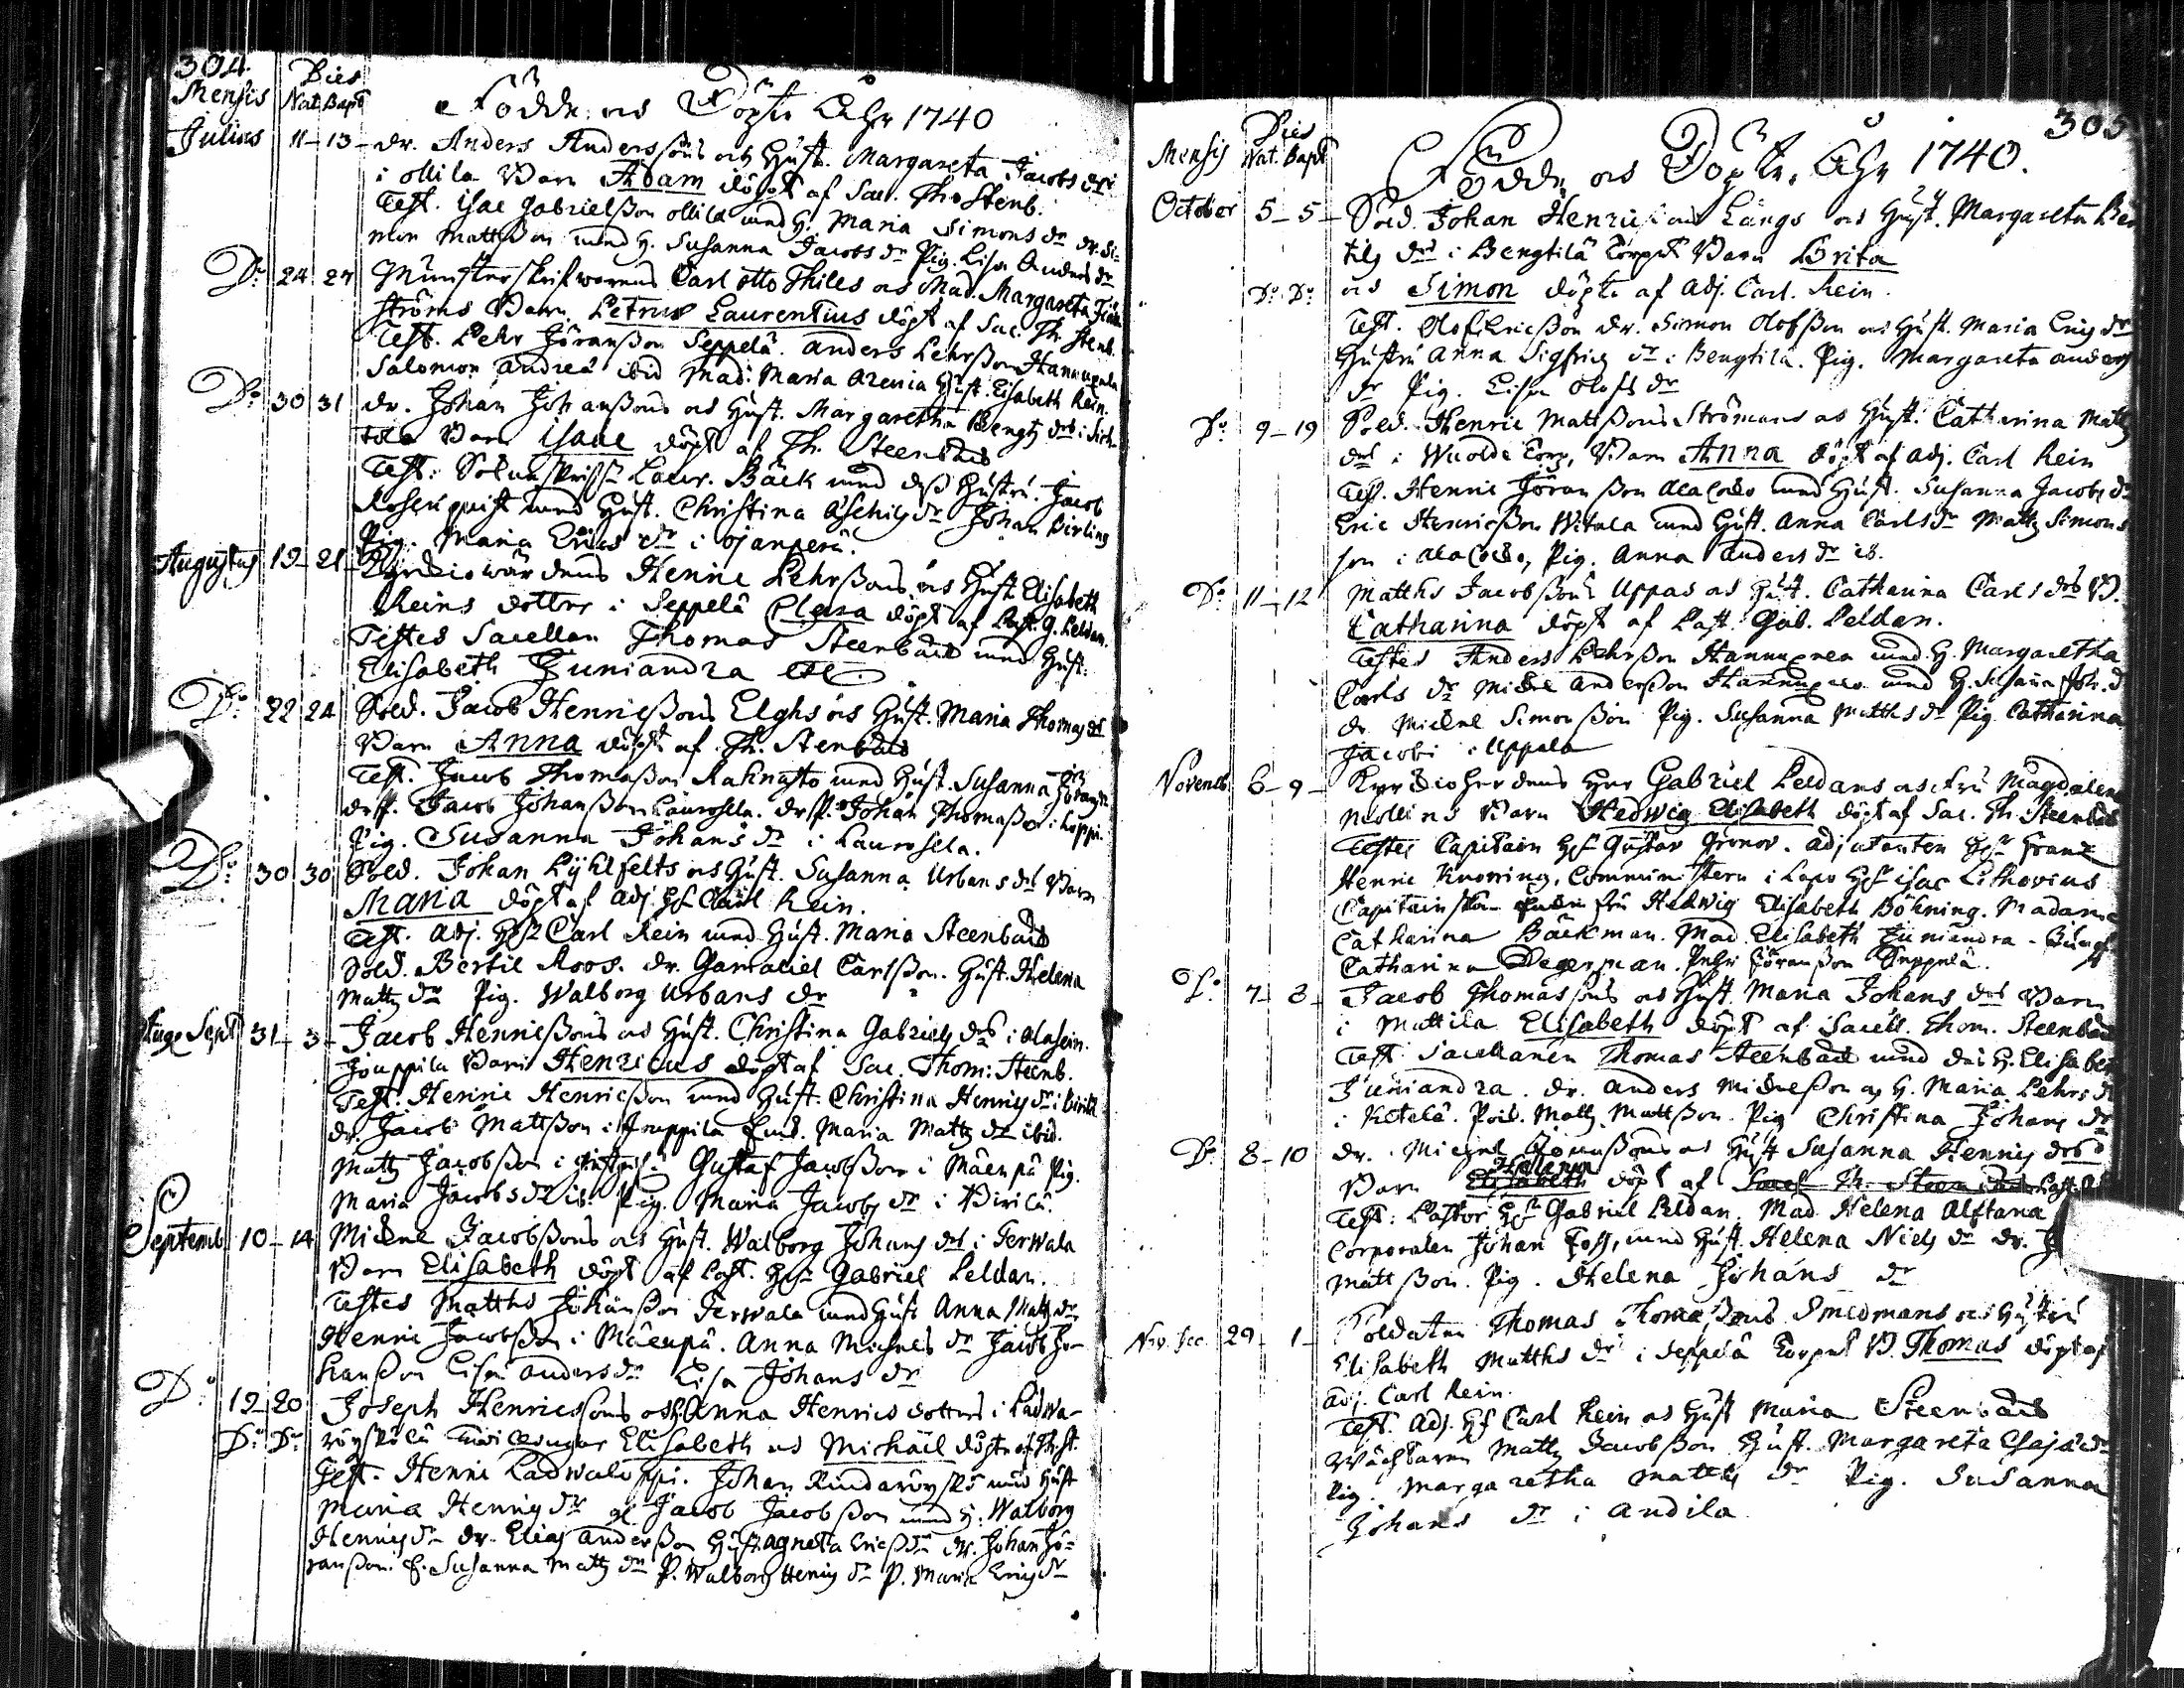 304.
Mensis Dies Nat. Bapt Födde och Döpte Åhr 1740
Julius 11-13- dr. Anders Anderssons och Hust. Margareta Jacobs dr
i Ollila Barn Adam döpt af Sac. Th. Stenb.
Test. Isac Gabrielsson Ollila med h. Maria Simons dr dr. Si-
mon Mattsson med h. Susanna Jacobs dr Pig. Lisa Anders dr
Do 24 27 Munsterskrifwarens Carl Otto Thiles och Mad. Margareta
ströms Barn Petrus Laurentius döpt af Sac. Th. Stenb.
Test. Pehr Jöransson Seppelä. Anders Pehrsson Hannupula
Salomon Andreæ ibid Mad. Maria Arenia Hust. Elisabeth Rein.
Do 30 31 dr. Johan Johanssons och Hust. Margaretha Bengts dr i
tila Barn Isaac döpt af Th. Steenbäck
Test: Laur. Bäck med dess Hustru. Jacob
Rosenquist med Hust. Christina Eschils dr Johan Birling
Pig. Maria Erics dr i Ojanperä.
Augustus 19-21- Kyrckiowärdens Henric Pehrssons och Hust. Elisabeth
Reins dotter i Seppelä Clara döpt af Past. G. Peldan.
Testes Sacellan Thomas Steenbäck med Hust.
Elisabeth Juniandra etc.
Do 22 24 Sold. Jacob Henricssons Elghs och Hust. Maria Thomas dr
Barn Anna döpt af Th. Stenbäck
Test. Jacob Thomasson med Hust. Susanna Jörans dr
Jacob Johansson Laurosela. Johan Thomasson i
Pig. Susanna Johans dr i Laurosela.
Do 30 30 Sold. Johan Lyhlfelts och Hust. Susanna Urbans dr Barn
Maria döpt af Adj. Hr Carl Rein.
Test. Adj. Hr Carl Rein med Hust. Maria Steenbäck
Sold. Bertil Roos. dr. Gamaliel Carlsson. Hust. Helena
Matts dr Pig. Walborg Urbans dr
Aug Sept 31- 3- Jacob Henricssons och Hust. Christina Gabriels dr i
Jouppila Barn Henricus döpt af Sac. Thom: Steenb.
Test. Henric Henricsson med Hust. Christina Henrics dr i
dr. Jacob Mattsson i Jouppila Maria Matts dr ibid.
Matts Jacobsson i Gustaf Jacobsson i Mäenpä Pig.
Maria Jacobs dr ib. Pig. Maria Jacobs dr i Pirilä.
Septemb 10-14 Michel Jacobssons och Hust. Walborg Johans dr i Terwala
Barn Elisabeth döpt af Past. Hr Gabriel Peldan.
Testes Matths Johansson Terwala med Hust. Anna Matts dr
Henric Jacobsson i Mäenpä. Anna Michels dr Jacob Jo-
hansson Lisa Anders dr Lisa Johans dr
Do 19-20 Joseph Henricssons och h. Anna Henrics dotters i
Do Do Twillingar Elisabeth och Michäel döpte af Th. St.
Test. Henric Johan med Hust
Maria Henrics dr Jacob Jacobsson med h. Walborg
Henrics dr dr. Elias Andersson Hust. Agneta Ericsdr dr. Johan Jö-
ransson. Susanna Matts dr P. Walborg Henrics dr P. Maria Erics dr
305
Mensis Dies Nat. Bapt Födde och Döpte Åhr 1740.
October 5-5- Sold. Johan Henricsons Långs och Hust. Margareta Ber
tils dr i Bengtilä Torpet Barn Brita
Do. Do och Simon döpte af Adj. Carl. Rein.
Test. Olof Ericsson dr. Simon Olofsson och Hust. Maria Erics dr
Hustru Anna Sigfrids dr i Bengtilä. Pig. Margareta Anders
dr Pig. Lisa Olofs dr
Do 9-19 Sold. Henric Mattsons Strömans och Hust. Catharina Matts
dr i Wuolde Torp, Barn Anna döpt af Adj. Carl Rein
Test. Henric Jöransson med Hust. Susanna Jacobs dr
Eric Henricsson Witala med Hust. Anna Carls dr Matts Simons
son i Pig. Anna Anders dr ib.
Do 11-12 Matths Jacobssons Uppas och Hust. Catharina Carls drs B.
Catharina döpt af Past. Gab. Peldan.
Testes Anders Pehrsson Hannuxela med h. Margaretha
Carls dr Michel Andersson med h. Susanna Joh. d
dr Michel Simonsson Pig. Susanna Matths dr Pig Catharina
Jacobi i Uppala
Novemb 6-9- Kyrckioherdens Herr Gabriel Peldans och fru Magdalena
Mollins Barn Hedwig Elisabeth döpt af Sac. Th. Steenbäck
Testes Capitain Hr Gustav Gronov. Adjutanten Hr Frantz
Henric Knorring, Comministern i Lapo Hr Isac Lithovius
Capitainskan fru Hedwig Elisabeth Böhning. Madame
Catharina Bäckman. Mad. Elisabeth Juniandra. Jungf.
Catharina Degerman. Pehr Jöransson Seppelä.
Do 7-8- Jacob Thomassons och Hust. Maria Johans drs Barn
i Mattila Elisabeth döpt af Sacell. Thom. Steenbäck
Test. Sacellanen Thomas Steenbäck med dess h. Elisabet
Juniandra. dr. Anders Michelsson och h. Maria Pehrs dr
i Ketelä. Matts Mattsson. Pig Christina Johans dr
Do 8-10 dr. Michel Jöranssons och Hust Susanna Henrics drs
Barn Elisabeth Helena döpt af Sacel Th. Steenbäck Past.
Test: Pastor Hr Gabriel Peldan. Mad. Helena Alftana
Corporalen Johan Foss, med Hust. Helena Niels dr dr.
Mattsson. Pig. Helena Johans dr
Nov. Dec. 29- 1- Soldaten Thomas Thomassons Smedmans och Hustru
Elisabeth Matths dr i Seppelä Torpet B. Thomas döpt af
Adj. Carl Rein.
Test. Adj. Hr Carl Rein och Hust Maria Steenbäck
Wächtaren Matts Jacobsson Hust. Margareta Esajæ dr
Pig. Margaretha Matts dr Pig. Susanna
Johans dr i Andila